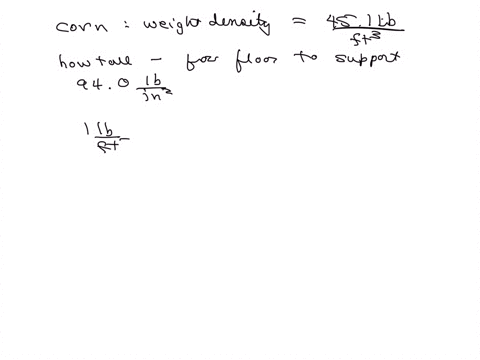 corn : weight density = 45.1 lb/ft³
how tall – for floor to support
94.0 lb/in²
1 lb/ft